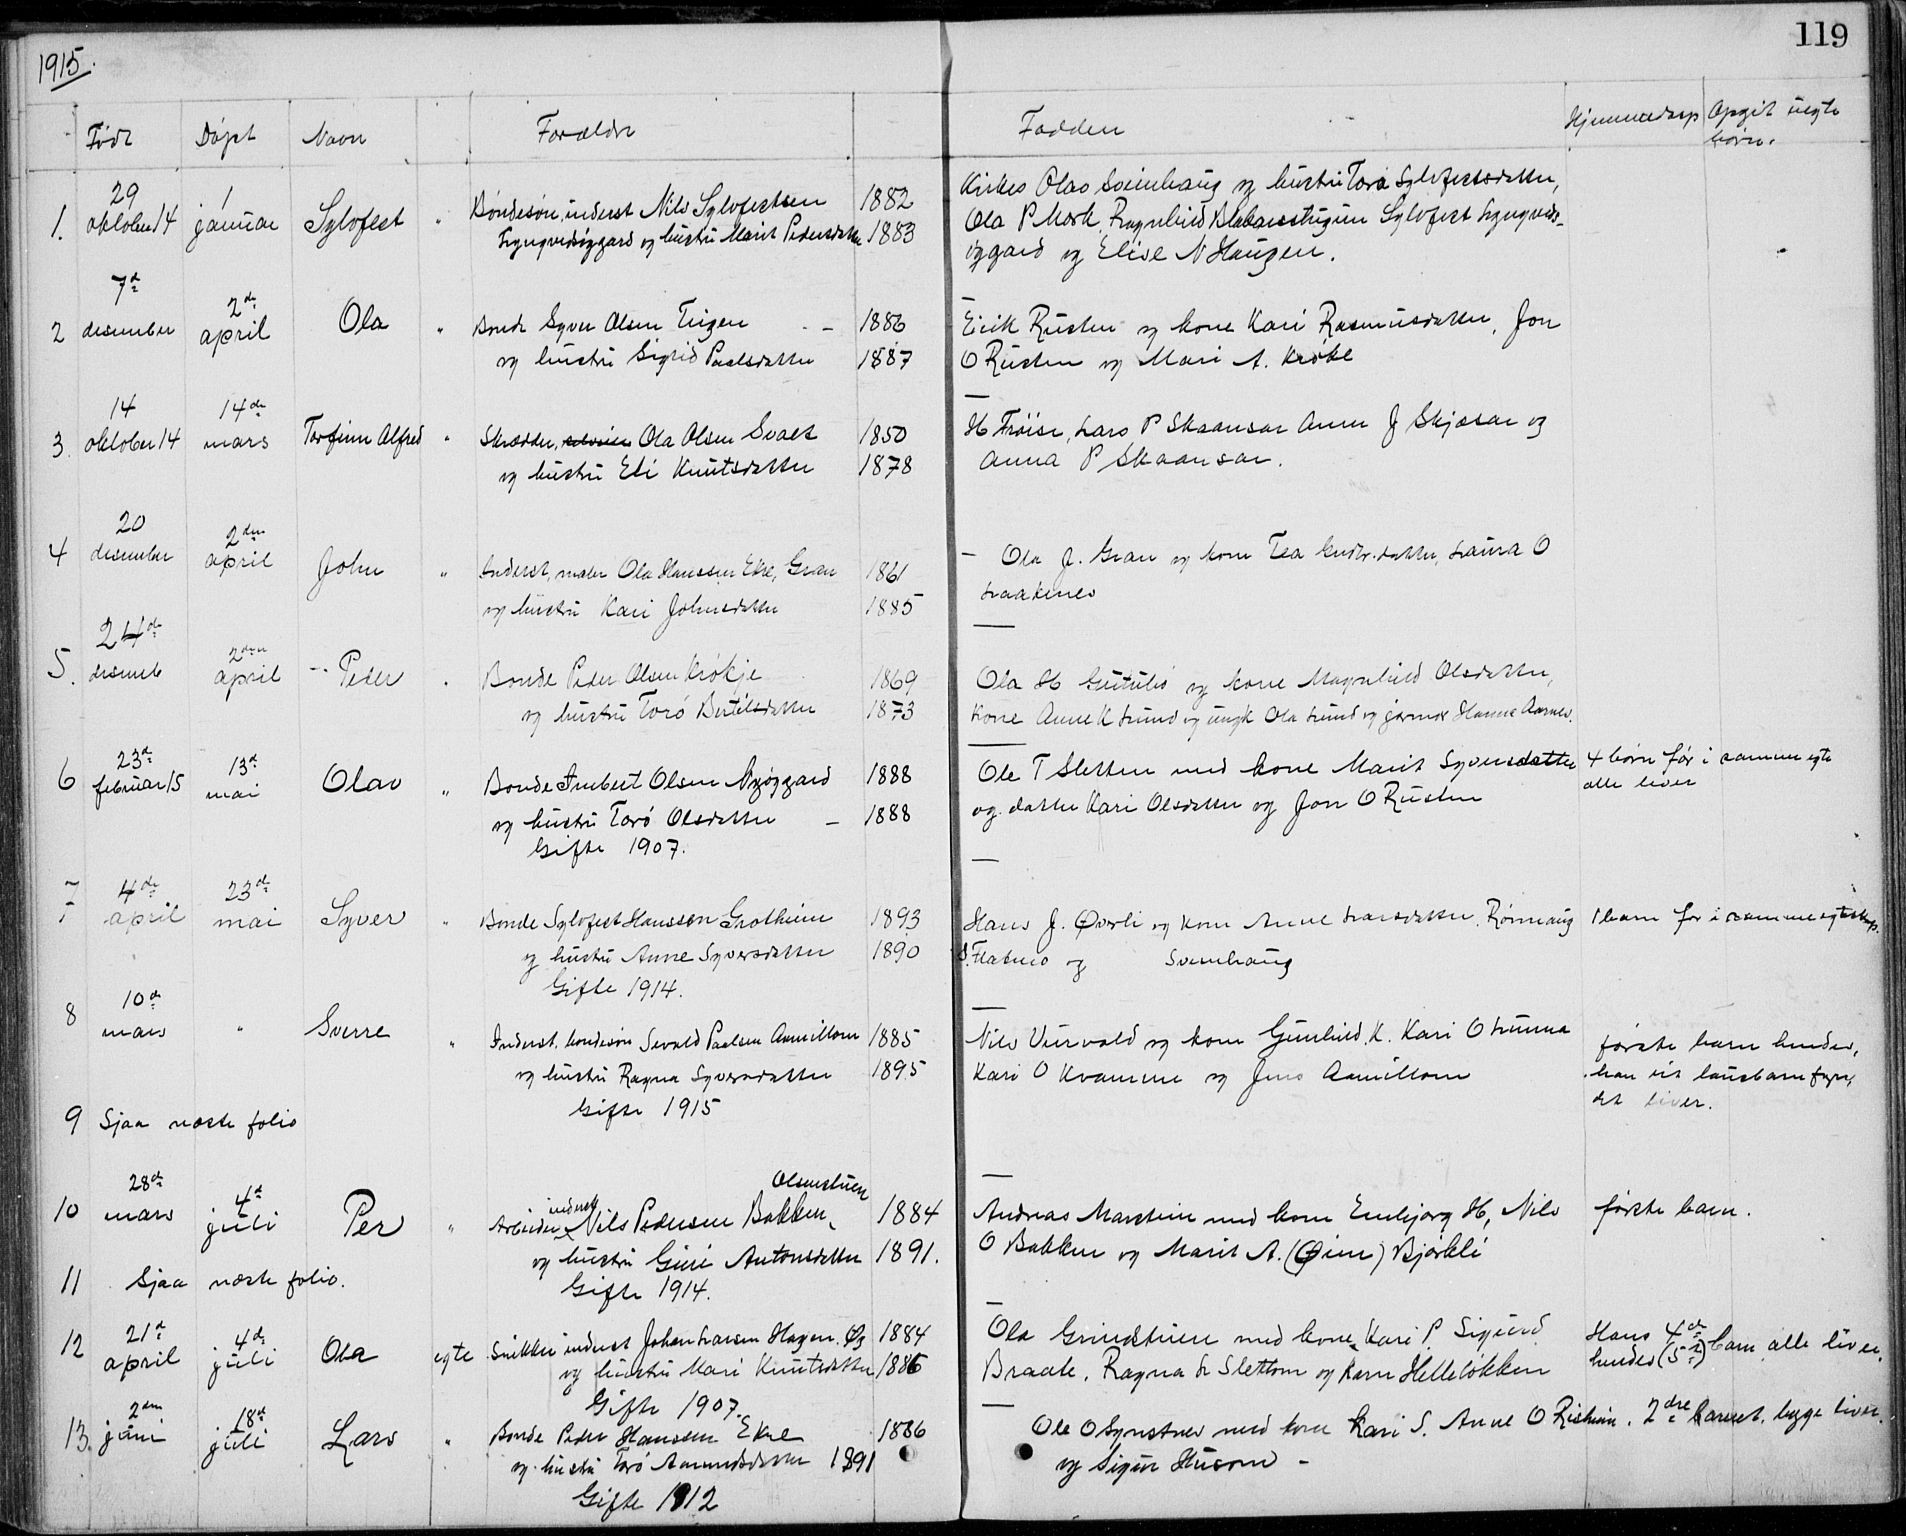 119
1915.
Født Døpt Navn Forældre Fadder Hjemmedaap Opgit uegte
børn.
1. 29 oktober 14 1 januar Sylofest " Bondesøn, inderst Nils Sylofestsen 1882
og hustru Marit Pedersdatter 1883
Kirkes. Olav Sveinhaug og hustru Tora Sylofestsdatter,
Ola P Mork, Ragnhild Sylofest
øygard og Elise N Haugen.
2 7de desember 2den april Ola " Bonde Syver Olsen Teigen - 1886
og hustru Sigrid Paalsdatter 1887
Eirik Rusten og kone Kari Rasmusdatter, Jon
O Rusten og Mari A. Krøke
3. 14 oktober 14 14de mars Torfinn Alfred " Skrædder, Ola Olsen Svaet 1850
og hustru Eli Knutsdatter 1878
H Frøise, Lars P Skaansar Anne J Skjæsar og
Anna P Skaansar.
4 20 desember 2den april John " Inderst, maler Ola Hanssen Ekre, Gran 1861
og hustru Kari Johnsdatter 1885
- Ola J. Gran og kone Tea Gudbr.datter, Laura O
5. 24de desemb 2den april Peder " Bonde Peder Olsen Krøkje 1869
og hustru Torø Bertilsdatter 1873
Ola H og kone Magnhild Olsdatter,
kone Anne K Lund og ungk Ola Lund og Hanna Aarnes.
6 23de februar 15 13de mai Olav " Bonde Imbert Olsen Nyøygard 1888
og hustru Torø Olsdatter - 1888
Gifte 1907.
Ole T Sletten med kone Marit Syversdatter
og datter Kari Olsdatter og Jon O Rusten
4 børn før i samme egte
alle lever
7 4de april 23de mai Syver " Bonde Sylofest Hanssen Grothiem 1893
og hustru Anne Syversdatter 1890
Gifte 1914.
Hans J. Øverli og kone Anne Larsdatter, Rønnaug
S. og Sveinhaug
1 barn før i samme egteskap.
8 10de mars " Sverre " Inderst, bondesøn Sevald Paalsen 1885
og hustru Ragna Syversdatter 1895
Gifte 1915
Nils Uurvold og kone Gunhild K. Kari O
Kari O Kvamme og Jens
første barn hendes,
han eit lausbarn fyrr,
det liver.
9 Sjaa næste folio
10 28de mars 4de juli Per " Arbeider inderst Nils Pedersen Bakken, Olsenstuen 1884
og hustru Guri Antonsdatter 1891.
Gifte 1914.
Andreas Marstein med kone Embjørg H, Nils
O Bakken og Marit A. (Øien) Bjørkli
første barn.
11 Sjaa næste folio.
12 21de april 4de juli Ola egte Snikker inderst Johan Larsen Hagen 1884
og hustru Mari Knutsdatter 1886
Gifte 1907.
Ola Grindstuen med kone Kari P. Sigurd
Braate, Ragna Slettom og Karen Helleløkken
Hans 4de
hendes (5te) barn alle lever.
13. 2den juni 18de juli Lars " Bonde Peder Hanssen Ekre 1886
og hustru Torø Amundsdatter 1891
Gifte 1912
Ole O Synstnes med kone Kari S. Anne O 2dre barnet, begge liver.
og Sigur Husom -